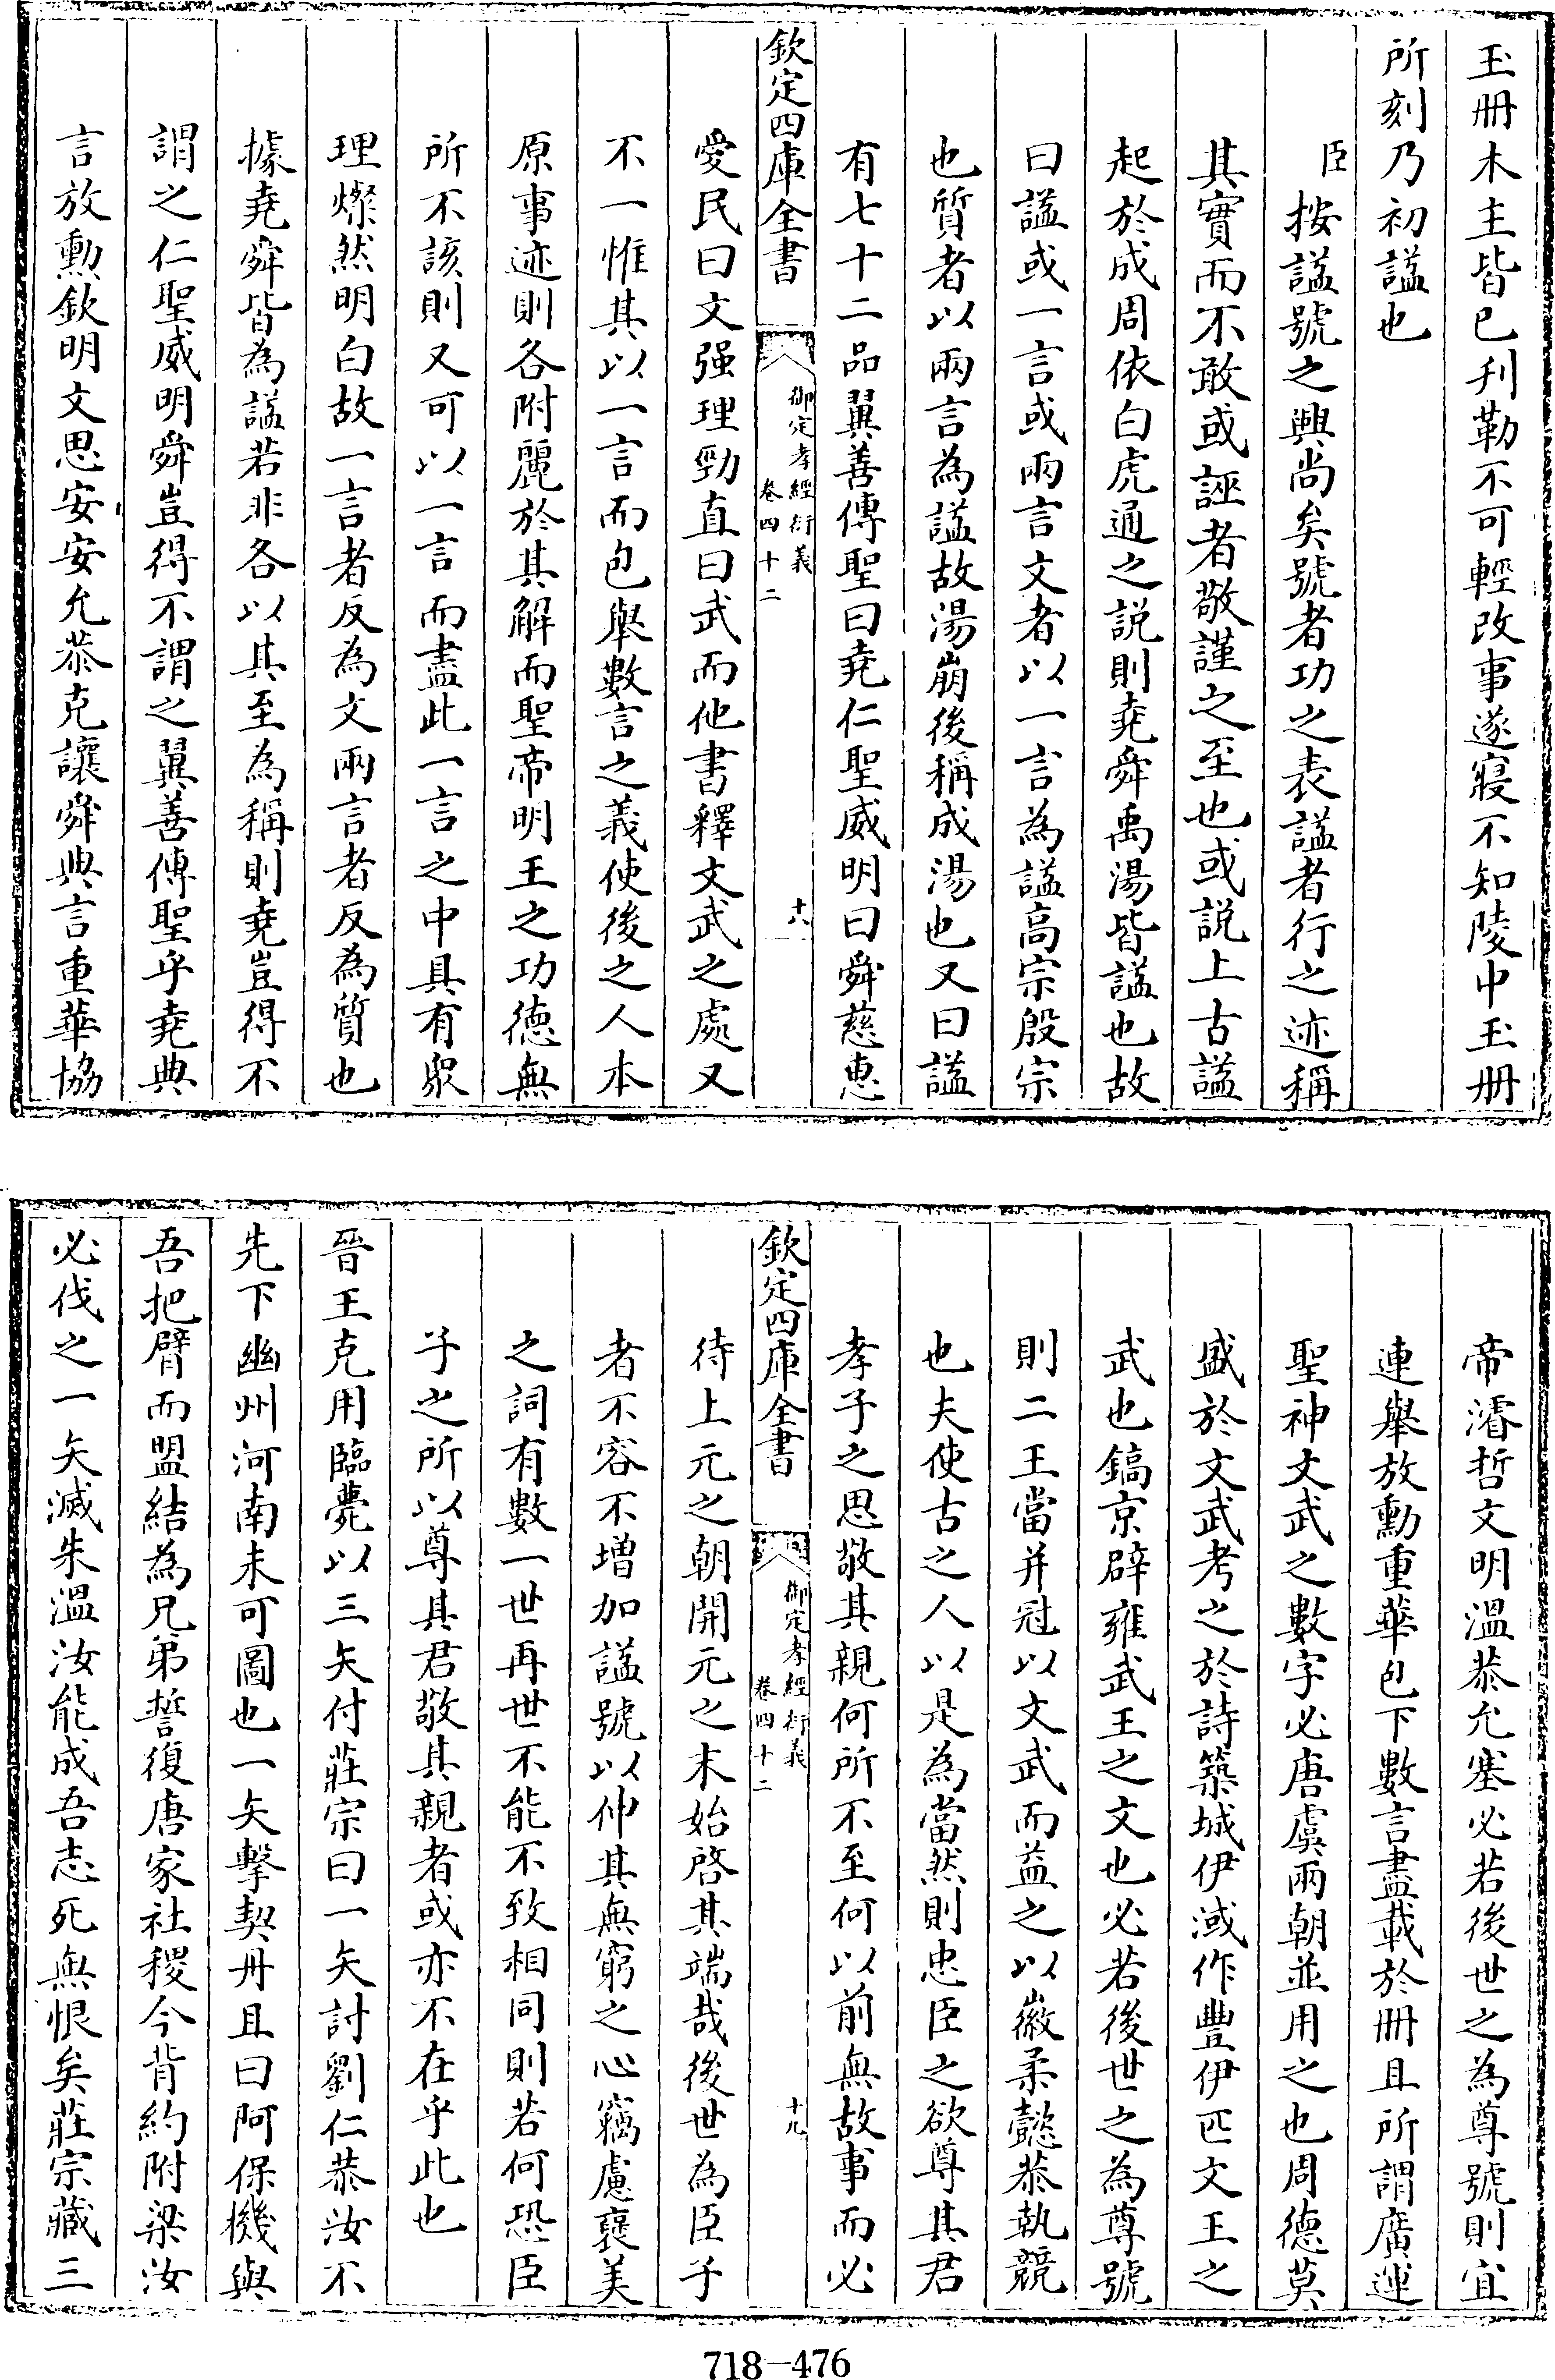 玉冊木主皆已刋勒不可輕改事遂寢不知陵中玉冊
所刻乃初諡也
臣按諡號之興尚矣號者功之表諡者行之迹稱
其實而不敢或誣者敬謹之至也或説上古諡
起於成周依白虎通之説則堯舜禹湯皆諡也故
曰諡或一言或兩言文者以一言為諡高宗殷宗
也質者以兩言為諡故湯崩後稱成湯也又曰諡
有七十二品翼善傳聖曰堯仁聖威明曰舜慈惠
欽定四庫全書
御定孝經衍義
卷四十二
十八
愛民曰文强理勁直曰武而他書釋文武之處又
不一惟其以一言而包舉數言之義使後之人本
原事迹則各附麗於其解而聖帝明王之功德無
所不該則又可以一言而盡此一言之中具有衆
理燦然明白故一言者反為文兩言者反為質也
據堯舜皆為諡若非各以其至為稱則堯豈得不
謂之仁聖威明舜豈得不謂之翼善傳聖乎堯典
言放勲欽明文思安安允恭克讓舜典言重華協
帝濬哲文明溫恭允塞必若後世之為尊號則宜
連舉放勳重華包下數言盡載於冊且所謂廣運
聖神文武之數字必唐虞兩朝並用之也周德莫
盛於文武考之於詩築城伊淢作豐伊匹文王之
武也鎬京辟雍武王之文也必若後世之為尊號
則二王當并冠以文武而益之以徽柔懿恭執競
也夫使古之人以是為當然則忠臣之欲尊其君
孝子之思敬其親何所不至何以前無故事而必
欽定四庫全書
御定孝經衍義
卷四十二
十九
待上元之朝開元之末始啓其端哉後世為臣子
者不容不增加諡號以伸其無窮之心竊慮襃美
之詞有數一世再世不能不致相同則若何恐臣
子之所以尊其君敬其親者或亦不在乎此也
晉王克用臨薨以三矢付莊宗曰一矢討劉仁恭汝不
先下幽州河南未可圖也一矢擊契丹且曰阿保機與
吾把臂而盟結為兄弟誓復唐家社稷今背約附梁汝
必伐之一矢滅朱溫汝能成吾志死無恨矣莊宗藏三
718-476